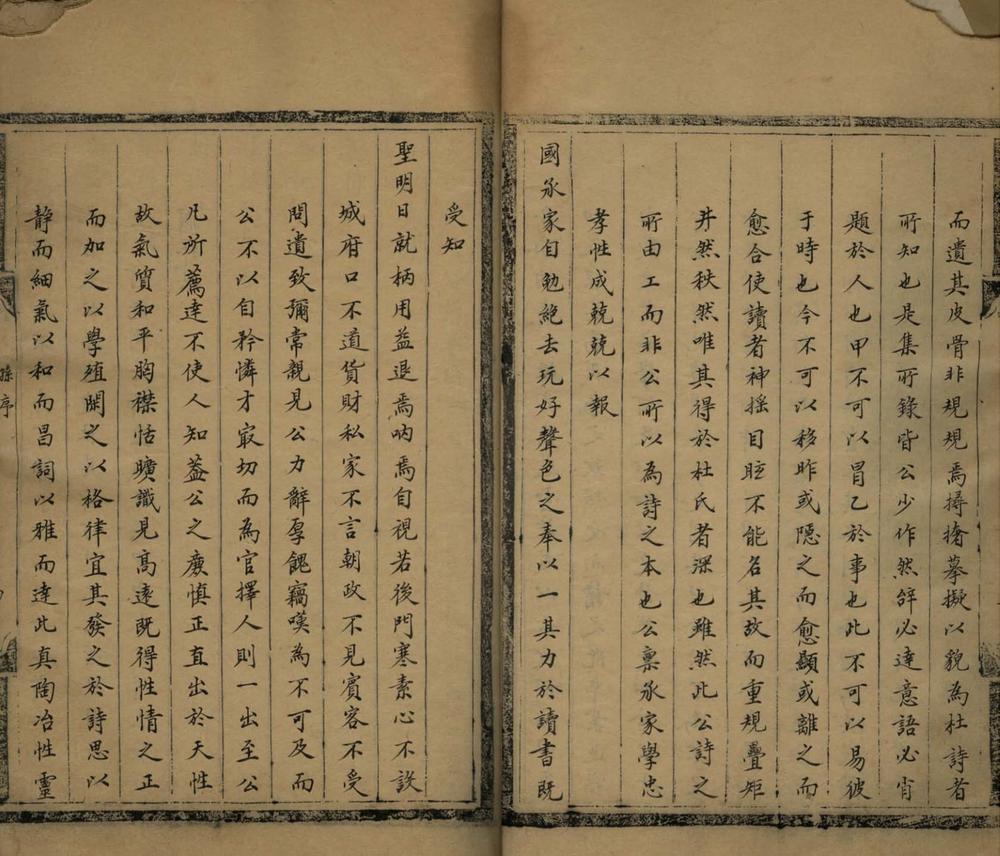 而遺其皮骨非規規焉撏撦摹擬以貌為杜詩者
所知也是集所錄皆公少作然辭必達意語必肖
題於人也甲不可以冒乙於事也此不可以易彼
于時也今不可以移昨或隱之而愈顯或離之而
愈合使讀者神搖目眩不能名其故而重規疊矩
井然秩然唯其得於杜氏者深也雖然此公詩之
所由工而非公所以為詩之本也公稟承家學忠
孝性成兢兢以報
國承家自勉絶去玩好聲色之奉以一其力於讀書既
受知
聖明日就柄用益退焉吶焉自視若後門寒素心不設
城府口不道貨財私家不言朝政不見賓客不受
問遺致彌常親見公力辭厚餽竊嘆為不可及而
公不以自矜憐才冣切而為官擇人則一出至公
凡所薦達不使人知葢公之廢慎正直出於天性
故氣質和平胸襟恬曠識見高遠既得性情之正
而加之以學殖閑之以格律宜其發之於詩思以
靜而細氣以和而昌詞以雅而達此真陶冶性靈
孫序